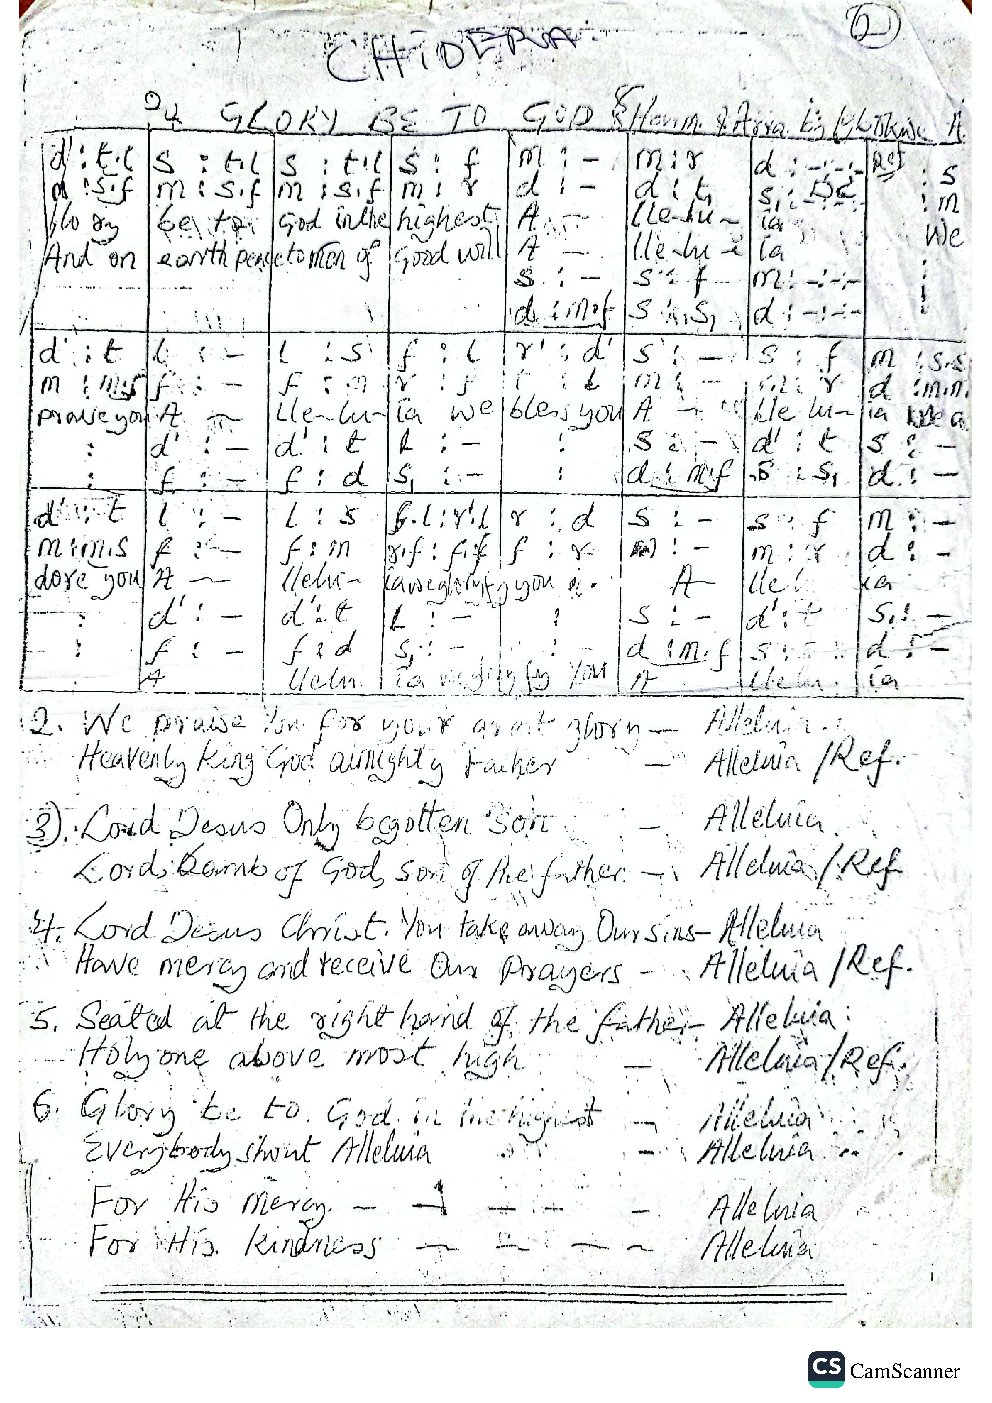 2
CHIDERA
2/4 GLORY BE TO GOD Harm. & Arra. by A
d' : t.l | s : t.l | s : t.l | s : f | m : - | m : r | d : -.-:- | Ref : s
d : s.f | m : s.f | m : s.f | m : r | d : - | d : t, | s, : : m
Glo ry | be to | God in the | highest | A - | lle-lu- | ia | We
And on | earth peace | to men of | Good will | A - | lle-lu- | ia | :
s : - | s : f | m : -.-:- | :
d : m.f | s : s, | d : -.-:-
d' : t | l : - | l : s | f : l | r' : d' | s : - | s : f | m : s.s
m : m.s | f : - | f : m | r : f | : | m : - | m : r | d : m.m.
praise you | A - | lle-lu- | ia we | bless you | A - | lle lu- | ia we a
: | d' : - | d' : t | l : - | : | s : - | d' : t | s : -
: | f : - | f : d | s, : - | : | d : m.f | s : s, | d : -
d' : t | l : - | l : s | f.l : r'.l | r : d | s : - | s : f | m : -
m : m.s | f : - | f : m | r.f : f.f | f : r | m : - | m : r | d : -
dore you | A - | llelu- | ia we glorify you | A- | lle | ia
: | d' : - | d' : t | l : - | : | s : - | d' : t | s, : -
: | f : - | f : d | s, : - | : | d : m.f | s : s | d : -
A | llelu. | ia we glorify you | A | llelu. | ia
2. We praise You for your great glory - Alleluia.
Heavenly King God almighty Father - Alleluia /Ref.
3). Lord Jesus Only begotten Son - Alleluia
Lord, Lamb of God, Son of the father. - Alleluia /Ref
4. Lord Jesus Christ. You take away Our sins - Alleluia
Have mercy and receive Our Prayers - Alleluia /Ref.
5. Seated at the right hand of the father - Alleluia
Holy one above most high - Alleluia /Ref.
6. Glory be to God in the highest - Alleluia
Everybody shout Alleluia - Alleluia
For His mercy - - - - - Alleluia
For His kindness - - - - Alleluia
CS CamScanner